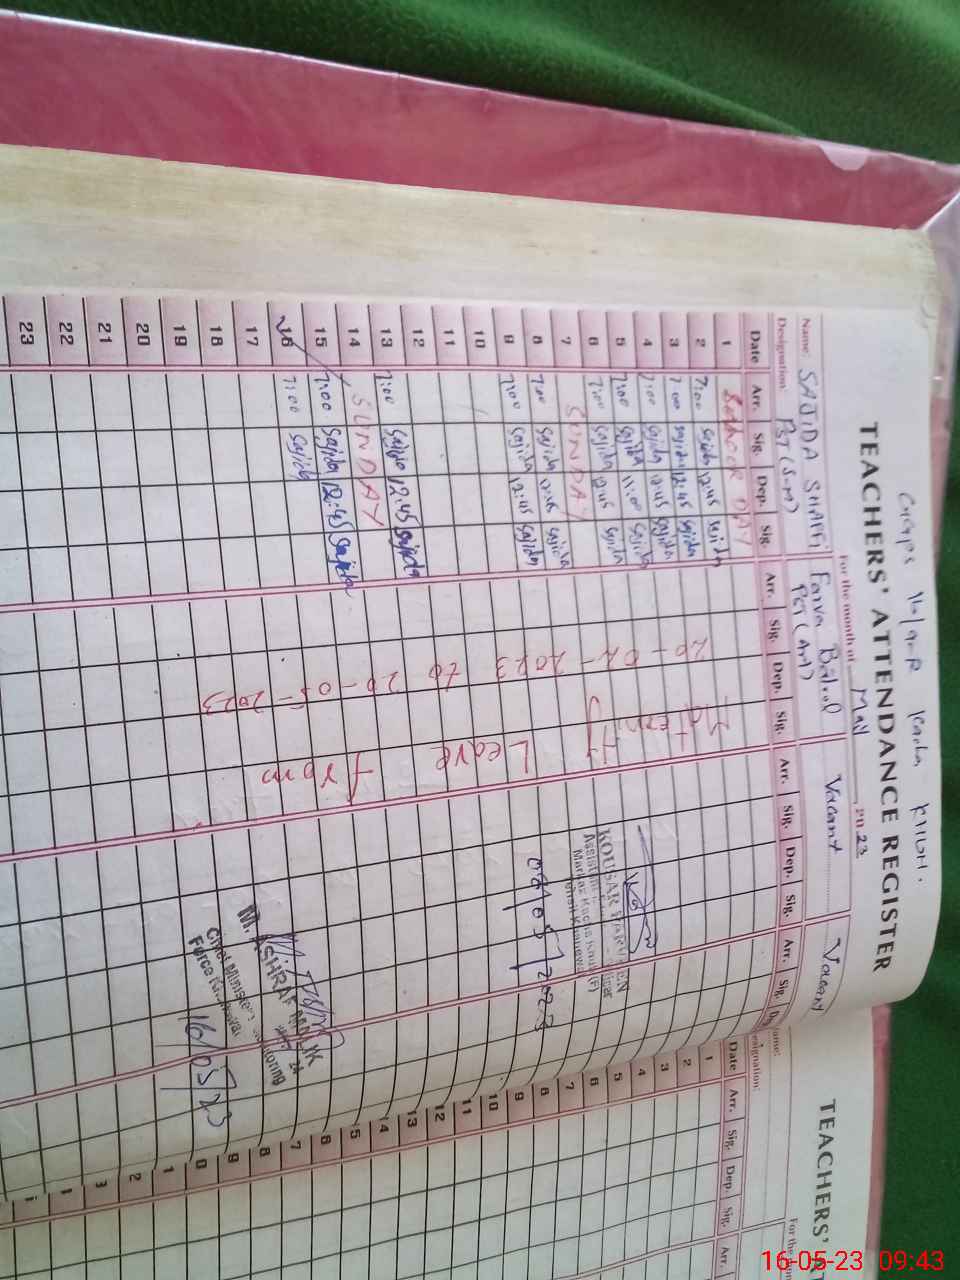 TEACHERS' ATTENDANCE REGISTER
For the month of May 2023
Name: SAJIDA SHAFFI Farva Vacant Vacant
Designation: PST (S-M) PST (Art)
Date Arr. Sig. Dep. Sig. Arr. Sig. Dep. Sig. Arr. Sig. Dep. Sig. Arr. Sig.
1 DAY
2 7:00 Sajida 12:45 Sajida
3 7:00 Sajida 12:45 Sajida
4 7:00 Sajida 12:45 Sajida
5 7:00 Sajida 11:00 Sajida
6 7:00 Sajida 12:45 Sajida
7 SUNDAY
8 7:00 Sajida 12:45 Sajida
9 7:00 Sajida 12:45 Sajida
10
11
12
13 7:00 Sajida 12:45 Sajida
14 SUNDAY
15 7:00 Sajida 12:45 Sajida
16 7:00 Sajida
17
18
19
20
21
22
23
Maternity Leave from
20-02-2023 to 20-05-2023
KOUSAR PARVEEN
Assistant
Markaz
M. ASHRAF MALIK
Chief Minister's Monitoring
Force Khanewal
16/05/23
TEACHERS'
For the
Name:
Designation:
Date Arr. Sig. Dep. Sig. Arr.
1
2
3
4
5
6
7
8
9
10
11
12
13
16-05-23 09:43